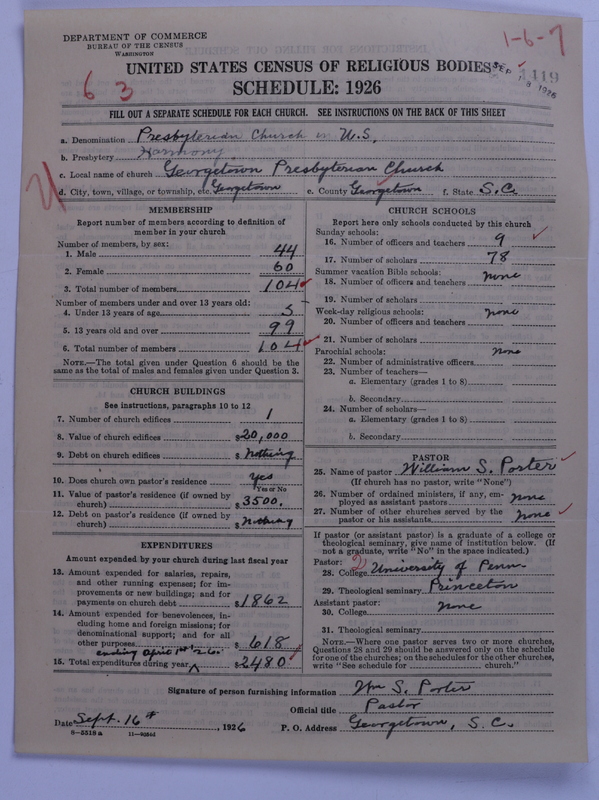 DEPARTMENT OF COMMERCE
BUREAU OF THE CENSUS
WASHINGTON
1-6-7
UNITED STATES CENSUS OF RELIGIOUS BODIES
SEP 18 1926
1419
63
SCHEDULE: 1926
FILL OUT A SEPARATE SCHEDULE FOR EACH CHURCH. SEE INSTRUCTIONS ON THE BACK OF THIS SHEET
a. Denomination Presbyterian Church in U.S.
b. Presbytery Harmony
c. Local name of church Georgetown Presbyterian Church
d. City, town, village, or township, etc. Georgetown e. County Georgetown f. State S.C.
MEMBERSHIP
Report number of members according to definition of
member in your church
Number of members, by sex:
1. Male 44
2. Female 60
3. Total number of members 104
Number of members under and over 13 years old:
4. Under 13 years of age 5
5. 13 years old and over 99
6. Total number of members 104
NOTE.—The total given under Question 6 should be the
same as the total of males and females given under Question 3.
CHURCH BUILDINGS
See instructions, paragraphs 10 to 12
7. Number of church edifices 1
8. Value of church edifices $20,000
9. Debt on church edifices $ Nothing
10. Does church own pastor's residence Yes
Yes or No
11. Value of pastor's residence (if owned by
church) $3500.
12. Debt on pastor's residence (if owned by
church) $ Nothing
EXPENDITURES
Amount expended by your church during last fiscal year
13. Amount expended for salaries, repairs,
and other running expenses; for im-
provements or new buildings; and for
payments on church debt $1862
14. Amount expended for benevolences, in-
cluding home and foreign missions; for
denominational support; and for all
other purposes $618
ending April 1st '26
15. Total expenditures during year $2480
CHURCH SCHOOLS
Report here only schools conducted by this church
Sunday schools:
16. Number of officers and teachers 9
17. Number of scholars 78
Summer vacation Bible schools:
18. Number of officers and teachers none
19. Number of scholars
Week-day religious schools:
20. Number of officers and teachers none
21. Number of scholars
Parochial schools: none
22. Number of administrative officers
23. Number of teachers—
a. Elementary (grades 1 to 8)
b. Secondary
24. Number of scholars—
a. Elementary (grades 1 to 8)
b. Secondary
PASTOR
25. Name of pastor William S. Porter
(If church has no pastor, write "None")
26. Number of ordained ministers, if any, em-
ployed as assistant pastors none
27. Number of other churches served by the
pastor or his assistants none
If pastor (or assistant pastor) is a graduate of a college or
theological seminary, give name of institution below. (If
not a graduate, write "No" in the space indicated.)
Pastor: 2
28. College University of Penn.
29. Theological seminary Princeton
Assistant pastor: none
30. College
31. Theological seminary
NOTE.—Where one pastor serves two or more churches,
Questions 28 and 29 should be answered only on the schedule
for one of the churches; on the schedules for the other churches,
write "See schedule for church."
Signature of person furnishing information Wm S. Porter
Official title Pastor
Date Sept. 16th, 1926 P. O. Address Georgetown, S.C.
8—5518a 11—9086d